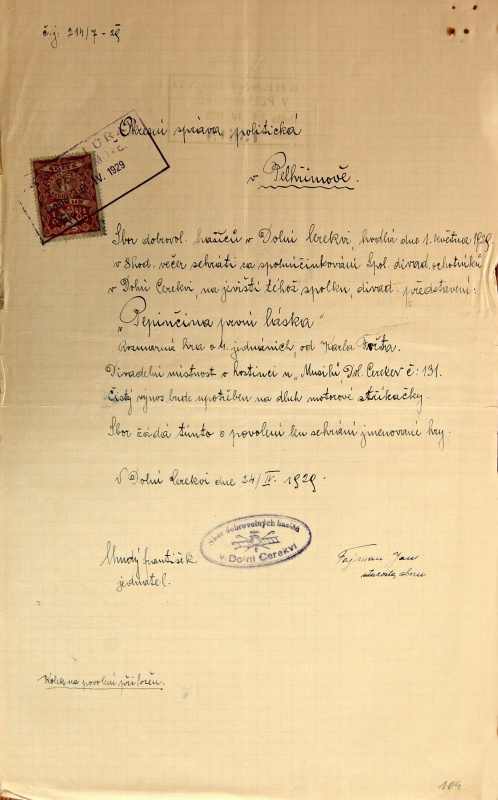 č.j. 214/7-29
Okresní správa politická
v Pelhřimově.
IV. 1929
Sbor dobrovol. hasičů v Dolní Cerekvi, hodlá dne 1. května 1929.
v 8 hod. večer sehráti za spoluúčinkování Spol. divad. ochotníků
v Dolní Cerekvi, na jevišti téhož spolku, divad. představení:
"Pepinčina první láska"
Rozmarná hra o 4. jednáních, od Karla Fořta.
Divadelní místnost v hostinci u "Musilů", Dol. Cerekev č: 131.
Čistý výnos bude upotřeben na dluh motorové stříkačky.
Sbor žádá tímto o povolení ku sehrání jmenované hry.
V Dolní Cerekvi dne 24/IV. 1929.
Sbor dobrovolných hasičů
v Dolní Cerekvi
Chudý František.
jednatel.
Fajman Jan
starosta sboru
Kolek na povolení přiložen.
104